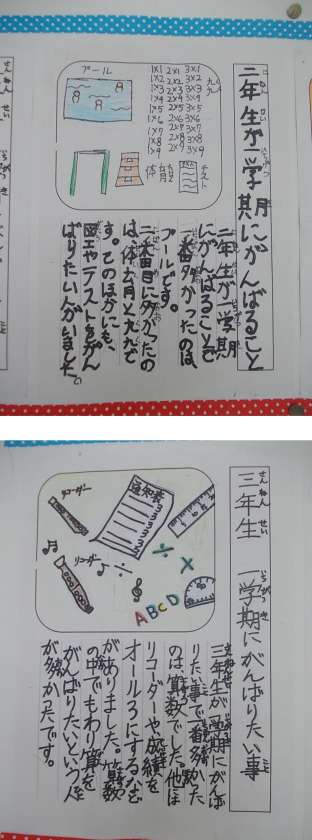 二年生が一学期にがんばること
プール
1×1
1×2
1×3
1×4
1×5
1×6
1×7
1×8
1×9
2×1
2×2
2×3
2×4
2×5
2×6
2×7
2×8
2×9
3×1
3×2
3×3
3×4
3×5
3×6
3×7
3×8
3×9
九九
体育
テスト
二年生が一学期
にがんばることで
一番多かったのは、
プールです。
二番目に多かったの
は、体育と九九で
す。そのほかにも、
図工やテストをがん
ばりたい人がいました。
三年生 一学期にがんばりたい事
リコーダー
通知表
リコーダー
ABCD
三年生が一学期にがんば
りたい事で一番多かった
のは算数でした。他には
リコーダーや成績を
オール3にするなど
がありました。算数
の中でもわり算を
がんばりたいという人
が多かったです。